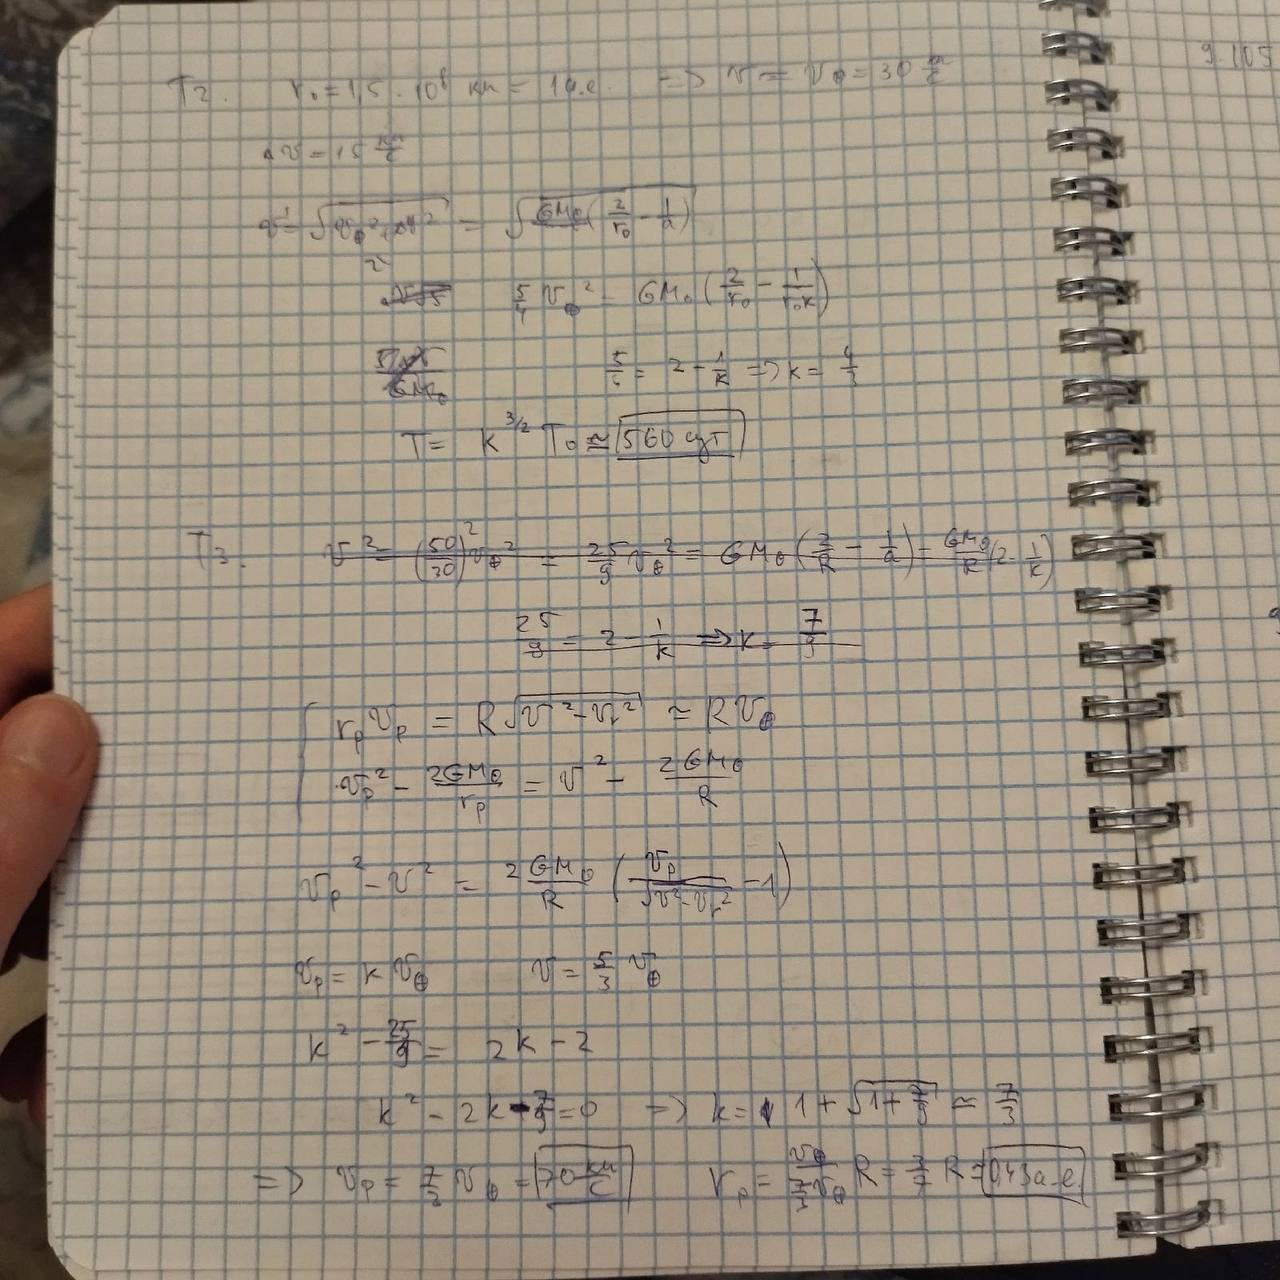 T2. r₀ = 1,5 · 10⁸ км = 1 а.е. => v = v⊕ = 30 км/с
Δv = 15 км/с
v = √(v⊕² + Δv²) = √(GM₀(2/r₀ - 1/a))
5/4 v⊕² = GM₀(2/r₀ - 1/(r₀k))
5/4 = 2 - 1/k => k = 4/3
T = k^(3/2) T₀ ≈ 560 сут
T3. v² = (50/30)² v⊕² = 25/9 v⊕² = GM₀(2/R - 1/a) = GM₀/R (2 - 1/k)
25/9 = 2 - 1/k => k = 7/9
r_p v_p = R√(v² - v_r²) ≈ R v⊕
v_p² - 2GM₀/r_p = v² - 2GM₀/R
v_p² - v² = 2GM₀/R (v_p/√(v² - v_r²) - 1)
v_p = k v⊕ v = 5/3 v⊕
k² - 25/9 = 2k - 2
k² - 2k - 7/9 = 0 => k = 1 + √(1 + 7/9) ≈ 7/3
=> v_p = 7/3 v⊕ = 70 км/с r_p = v⊕/(7/3 v⊕) R = 3/7 R = 0,43 а.е.
9.105